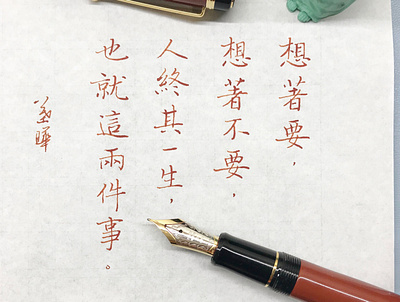 想著要，
想著不要，
人終其一生，
也就這兩件事。